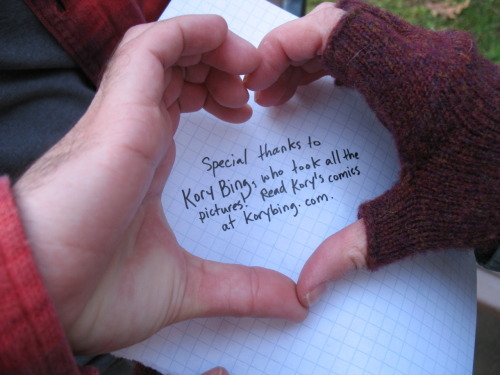 Special thanks to
Kory Bing, who took all the
pictures! Read Kory's comics
at Korybing.com.